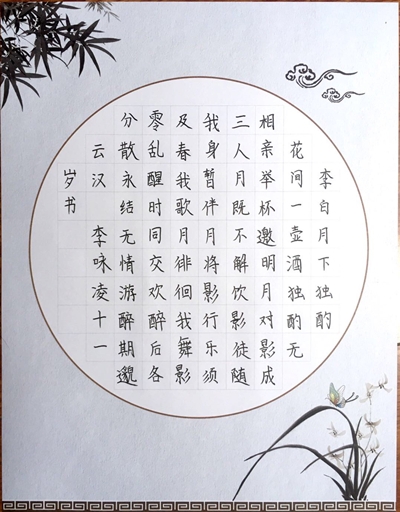 李白月下独酌
花间一壶酒独酌无
相亲举杯邀明月对影成
三人月既不解饮影徒随
我身暂伴月将影行乐须
及春我歌月徘徊我舞影
零乱醒时同交欢醉后各
分散永结无情游醉期邈
云汉 李味凌十一
岁书